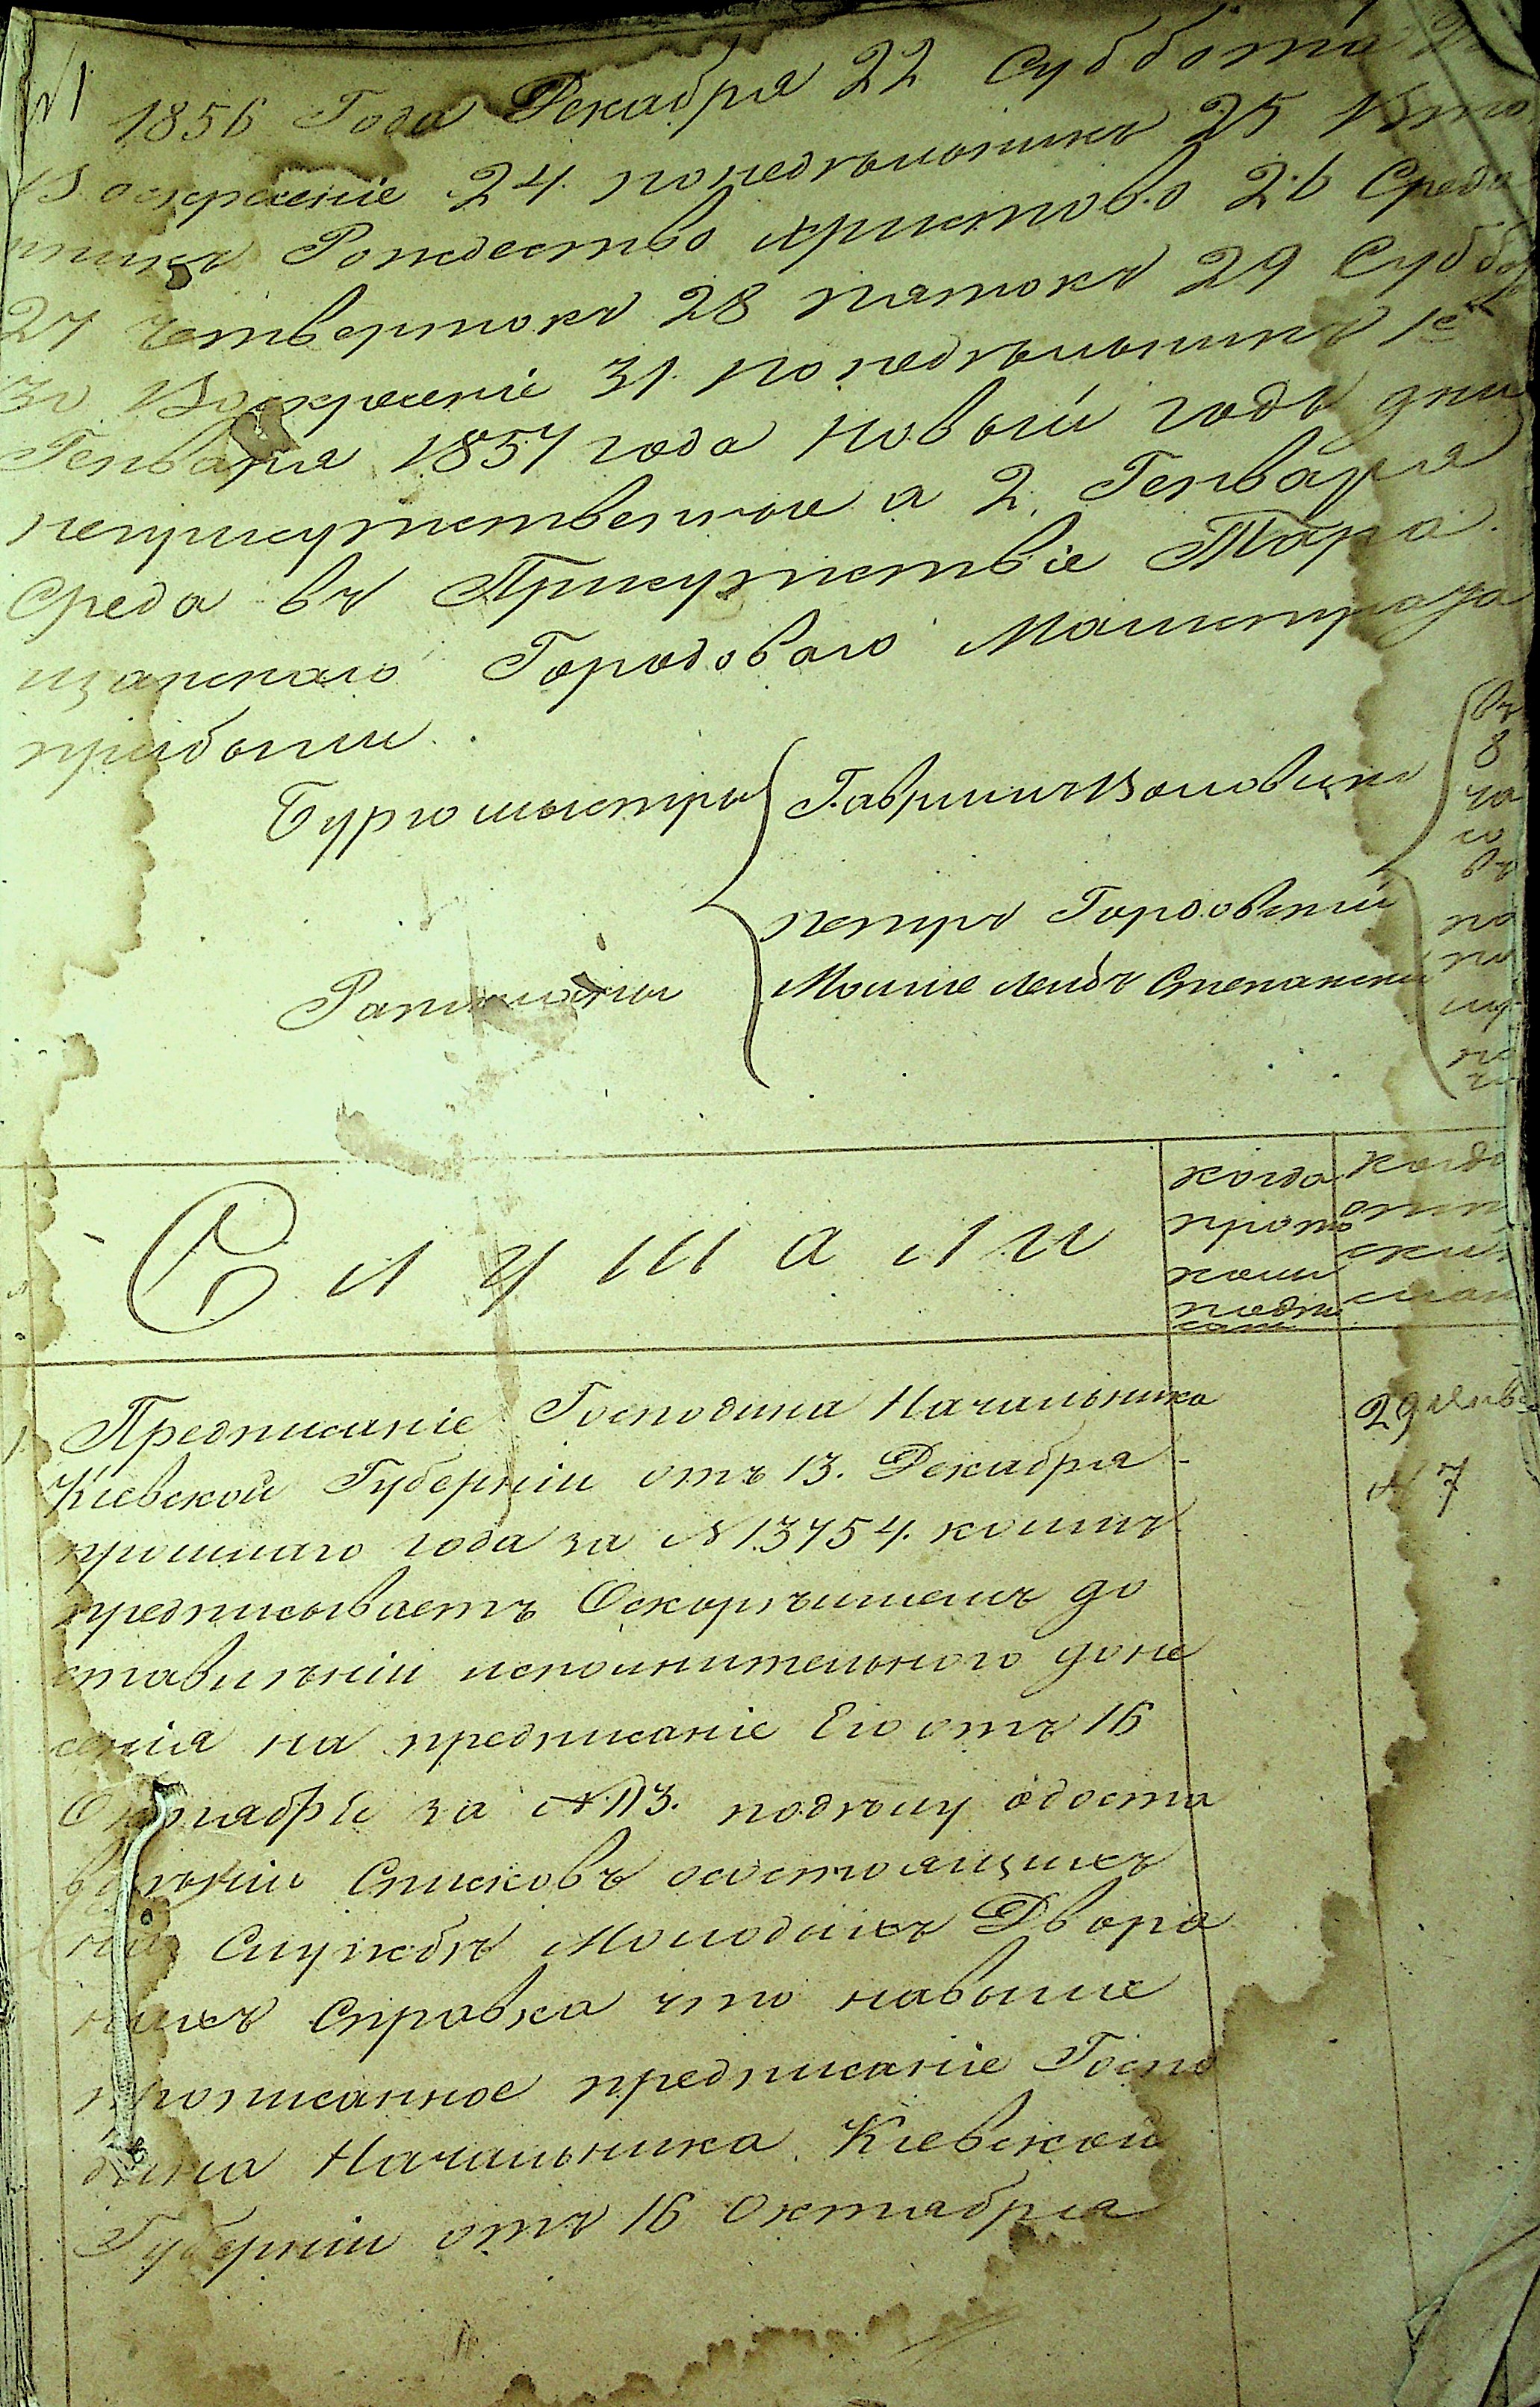 №1
1856 Года Декабря 22 Суббота
Воскресеніе 24. понедѣльникъ 25 Вто
никъ Рождество христово 26 Среда
27 Четвертокъ 28 пятокъ 29 Суббо
30 Воскресеніе 31. понедѣльникъ 1е
Генваря 1857 года новый годъ дни
неприсутственные а 2. Генваря
Среда въ Присутствіе Тара
щанскаго Городоваго Магистрата
прибыли.
Бургомыстры
Гаврыилъ
въ
8
ча
со
въ
петръ Гордовскій
Ратманы
Мошие Лейбъ Степанскій
по
по
лу
но
чи
Слушали
когда
прото
колъ
подпи
санъ
1. Предписаніе Господина Начальника
Кіевской Губерніи отъ 13. Декабря
прошлаго года за №13754. коимъ
предписываетъ Оскорѣйшемъ до
ставленіи исполнительного доне
сенія на предписаніе Его отъ 16
Октября за №113. поделу одоста
вленіи Списковъ осостоящихъ
на Службѣ Молодыхъ Дворя
нахъ Справка что навыше
прописанное предписаніе Госпо
дина Начальника Кіевской
Губерніи отъ 16 Октября
29 Янв
№ 7